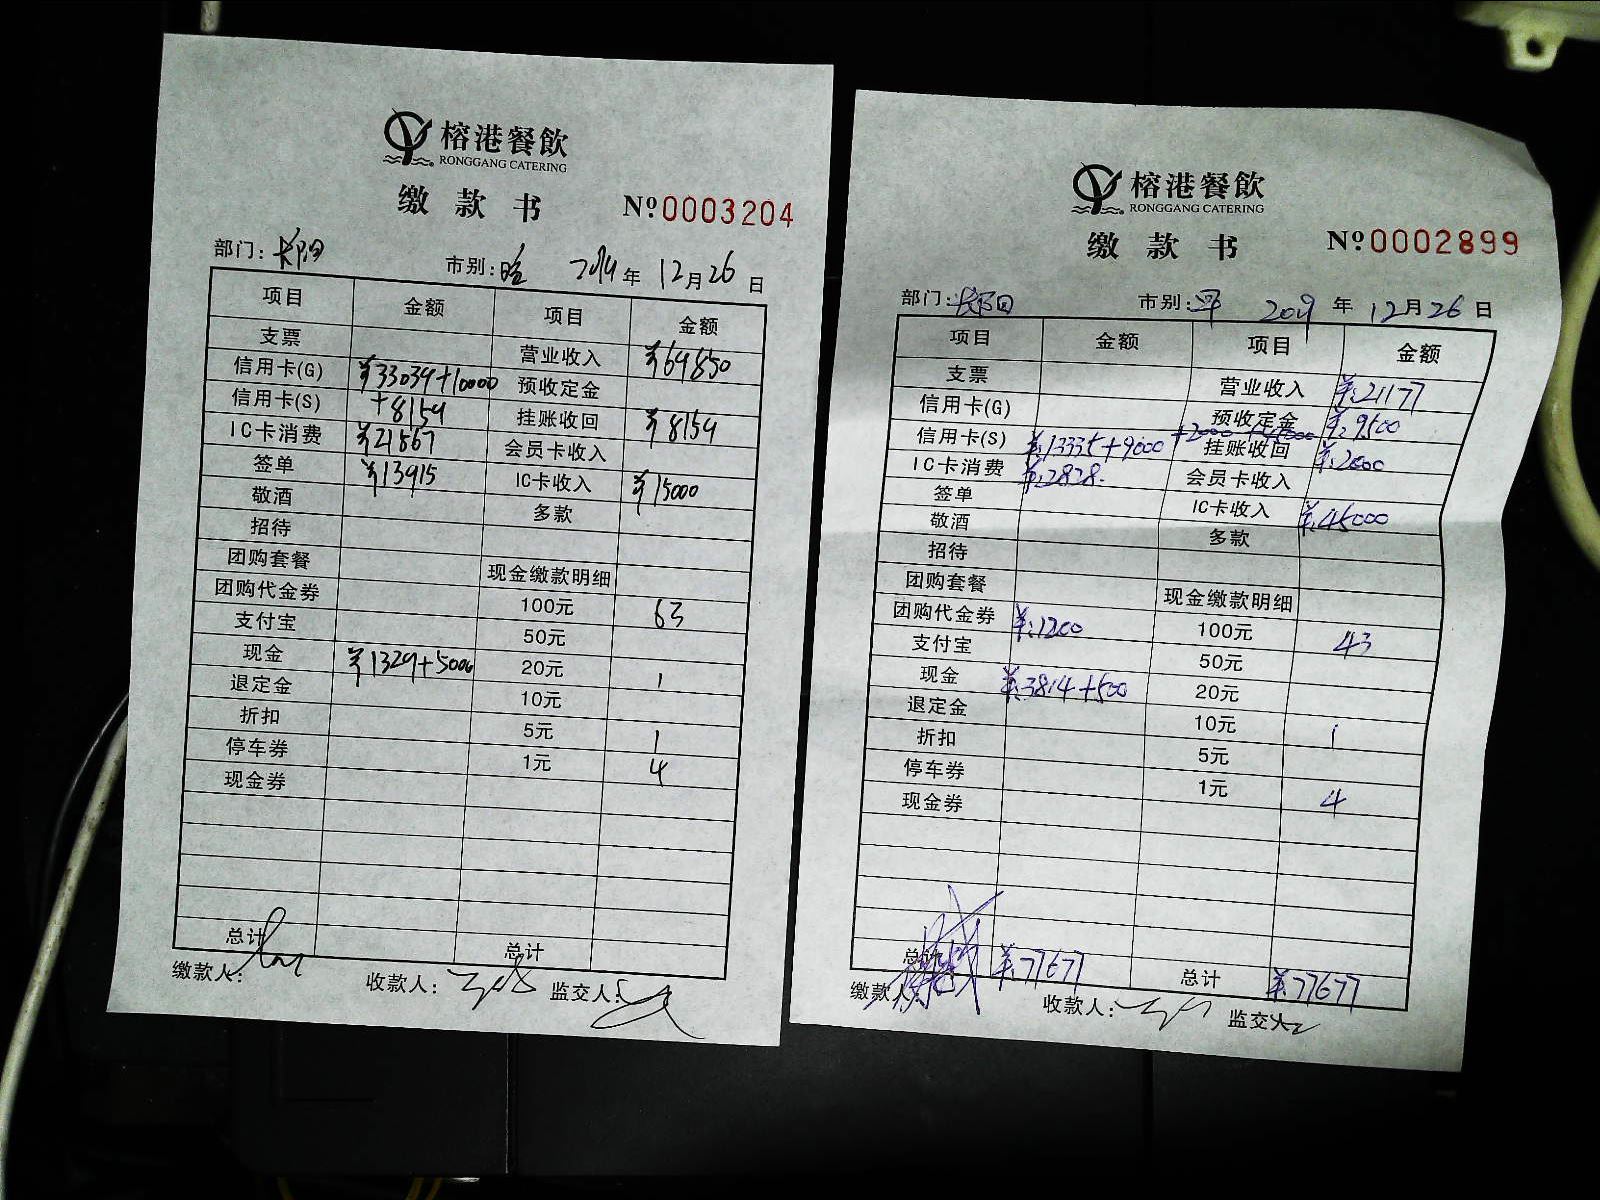 榕港餐飲
RONGGANG CATERING
缴款书 Nº0003204
部门: 市别: 年 12月26日
项目 金额 项目 金额
支票 营业收入 ¥69850
信用卡(G) ¥33034+10000 预收定金
信用卡(S) +8159 挂账收回 ¥8159
IC卡消费 ¥21567 会员卡收入
签单 ¥13915 IC卡收入 ¥15000
敬酒 多款
招待
团购套餐 现金缴款明细
团购代金券 100元 63
支付宝 50元
现金 ¥1329+5000 20元 1
退定金 10元
折扣 5元 1
停车券 1元 4
现金券
总计 总计
缴款人: 收款人: 监交人:
榕港餐飲
RONGGANG CATERING
缴款书 Nº0002899
部门: 市别: 2019年12月26日
项目 金额 项目 金额
支票 营业收入 ¥:21177
信用卡(G) 预收定金 ¥:9500
信用卡(S) ¥:13335+9000+2000+45000 挂账收回 ¥:2000
IC卡消费 ¥:2828. 会员卡收入
签单 IC卡收入 ¥:45000
敬酒 多款
招待
团购套餐 现金缴款明细
团购代金券 ¥:1200 100元 43
支付宝 50元
现金 ¥:3814+500 20元
退定金 10元 1
折扣 5元
停车券 1元 4
现金券
总计 ¥:77677 总计 ¥:77677
缴款人: 收款人: 监交人